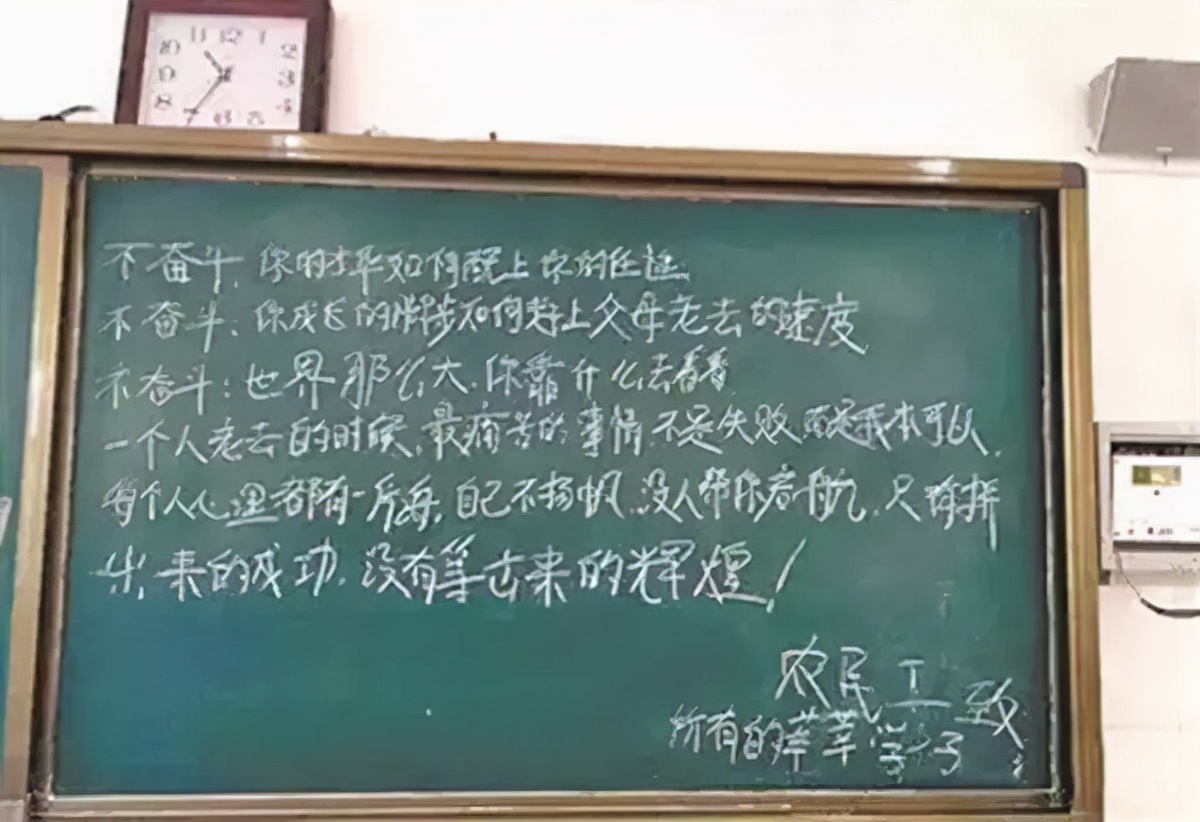 11 12 1
10
9 3
8
7
不奋斗，你的才华如何配上你的任性
不奋斗：你成长的脚步如何赶上父母老去的速度
不奋斗：世界那么大，你靠什么去看看
一个人老去的时候，最痛苦的事情，不是失败，而是我本可以，
每个人心里都有一片海，自己不扬帆，没人帮你启航，只有拼
出来的成功，没有等出来的辉煌！
农民工致
所有的莘莘学子